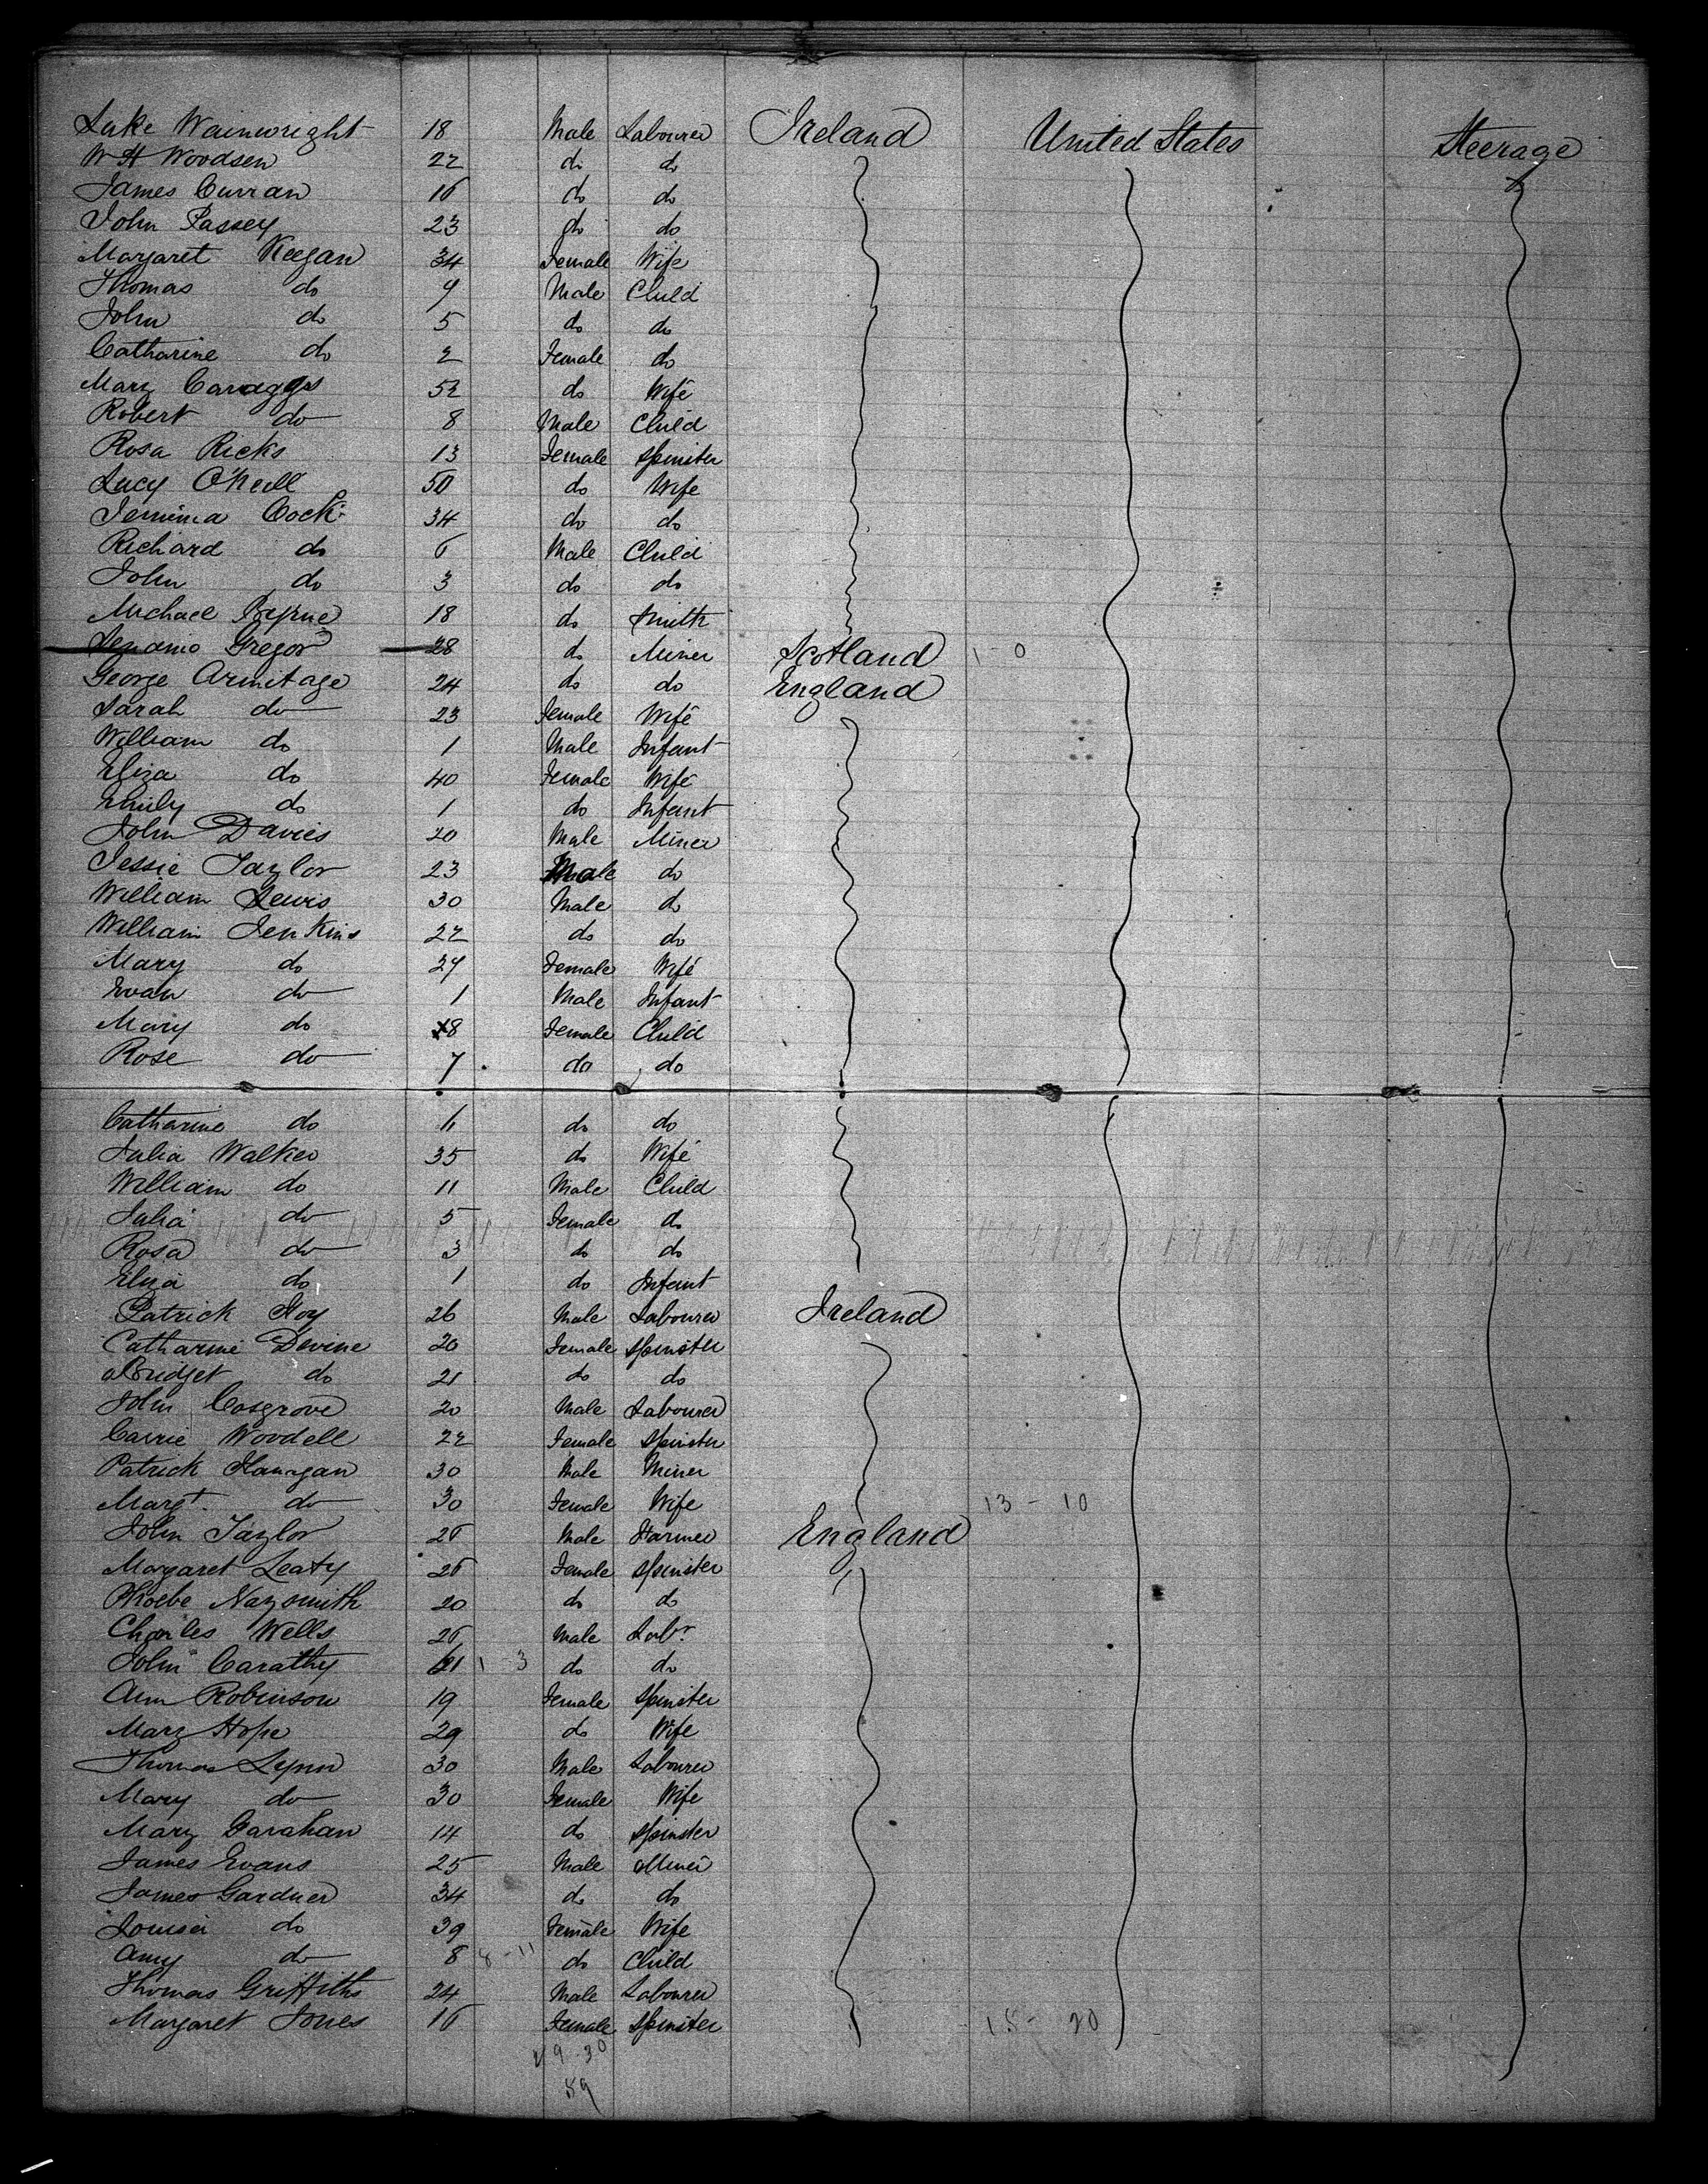 Luke Wainwright 18 Male Labourer Ireland United States Steerage
W H Woodsen 22 do do
James Curran 16 do do
John Passey 23 do do
Margaret Keegan 34 Female Wife
Thomas do 9 Male Child
John do 5 do do
Catharine do 2 Female do
Mary 52 do Wife
Robert do 8 Male Child
Rosa Ricks 13 Female Spinster
Lucy O'Neill 50 do Wife
Jemima Cock 34 do do
Richard do 6 Male Child
John do 3 do do
Michael Byrne 18 do Smith
Gregor 28 do Miner Scotland 1 - 0
George Armitage 24 do do England
Sarah do 23 Female Wife
William do 1 Male Infant
Eliza do 40 Female Wife
Emily do 1 do Infant
John Davies 20 Male Miner
Jessie Taylor 23 Male do
William Lewis 30 Male do
William Jenkins 22 do do
Mary do 27 Female Wife
Evan do 1 Male Infant
Mary do 8 Female Child
Rose do 7 do do
Catharine do do do
Julia Walker 35 do Wife
William do 11 Male Child
Julia do 5 Female do
Rosa do 3 do do
Eliza do 1 do Infant
Patrick 26 Male Labourer Ireland
Catharine Devine 20 Female Spinster
Bridget do 21 do do
John Cosgrove 20 Male Labourer
Carrie Woodell 22 Female Spinster
Patrick Flanagan 30 Male Miner
Margt. do 30 Female Wife 13 - 10
John Taylor 26 Male Farmer England
Margaret Leaty 26 Female Spinster
Phoebe Naysmith 20 do do
Charles Wells 26 Male Labr.
John Carathy 21 1 3 do do
Ann Robinson 19 Female Spinster
Mary Hope 29 do Wife
Thomas Lynn 30 Male Labourer
Mary do 30 Female Wife
Mary Garahan 14 do Spinster
James Evans 25 Male Miner
James Gardner 34 do do
Louisa do 39 Female Wife
Amy do 8 8 - 11 do Child
Thomas Griffiths 24 Male Labourer
Margaret Jones 16 Female Spinster 15 - 20
29 - 30
59